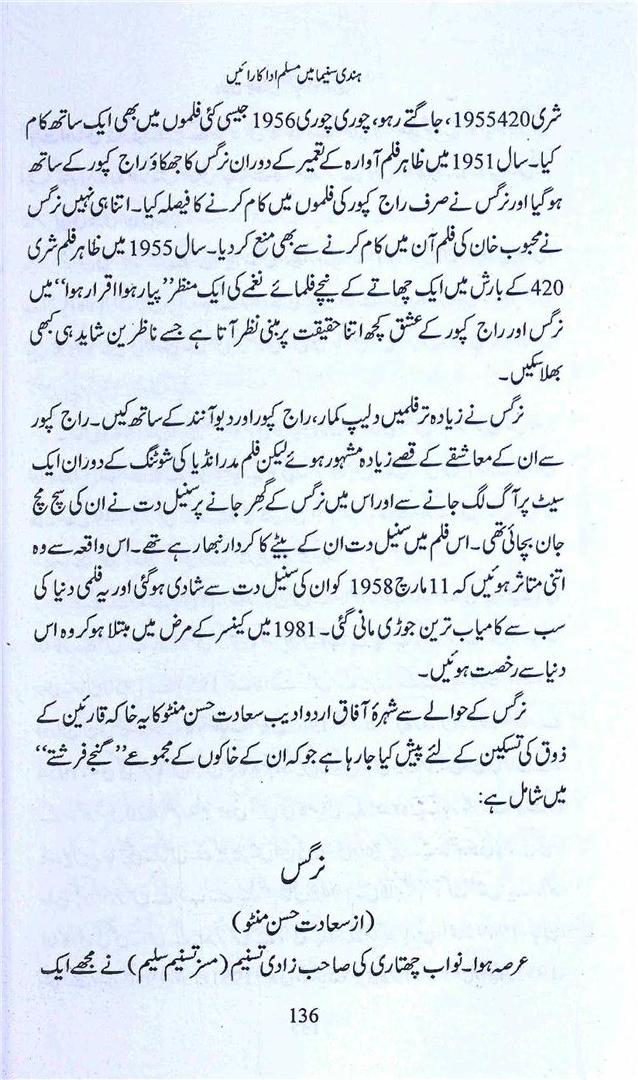 ہندی سنیما میں مسلم اداکارائیں
شری 1955420، جاگتے رہو، چوری چوری 1956 جیسی کئی فلموں میں بھی ایک ساتھ کام
کیا۔ سال 1951 میں ظاہر فلم آوارہ کے تعمیر کے دوران نرگس کا جھکاؤ راج کپور کے ساتھ
ہو گیا اور نرگس نے صرف راج کپور کی فلموں میں کام کرنے کا فیصلہ کیا۔ اتنا ہی نہیں نرگس
نے محبوب خان کی فلم آن میں کام کرنے سے بھی منع کر دیا۔ سال 1955 میں ظاہر فلم شری
420 کے بارش میں ایک چھاتے کے نیچے فلمائے نغمے کی ایک منظر ”پیار ہوا اقرار ہوا“ میں
نرگس اور راج کپور کے عشق کچھ اتنا حقیقت پر مبنی نظر آتا ہے جسے ناظرین شاید ہی کبھی
بھلا سکیں۔
نرگس نے زیادہ تر فلمیں دلیپ کمار، راج کپور اور دیو آنند کے ساتھ کیں۔ راج کپور
سے ان کے معاشقے کے قصے زیادہ مشہور ہوئے لیکن فلم مدر انڈیا کی شوٹنگ کے دوران ایک
سیٹ پر آگ لگ جانے سے اور اس میں نرگس کے گھر جانے پر سنیل دت نے ان کی سچ مچ
جان بچائی تھی۔ اس فلم میں سنیل دت ان کے بیٹے کا کردار نبھا رہے تھے۔ اس واقعہ سے وہ
اتنی متاثر ہوئیں کہ 11 مارچ 1958 کو ان کی سنیل دت سے شادی ہو گئی اور یہ فلمی دنیا کی
سب سے کامیاب ترین جوڑی مانی گئی۔ 1981 میں کینسر کے مرض میں مبتلا ہو کر وہ اس
دنیا سے رخصت ہوئیں۔
نرگس کے حوالے سے شہرۂ آفاق اردو ادیب سعادت حسن منٹو کا یہ خاکہ قارئین کے
ذوق کی تسکین کے لئے پیش کیا جا رہا ہے جو کہ ان کے خاکوں کے مجموعے ”گنجے فرشتے“
میں شامل ہے:
نرگس
(از سعادت حسن منٹو)
عرصہ ہوا۔ نواب چھتاری کی صاحب زادی تسنیم (مسز تسنیم سلیم) نے مجھے ایک
136